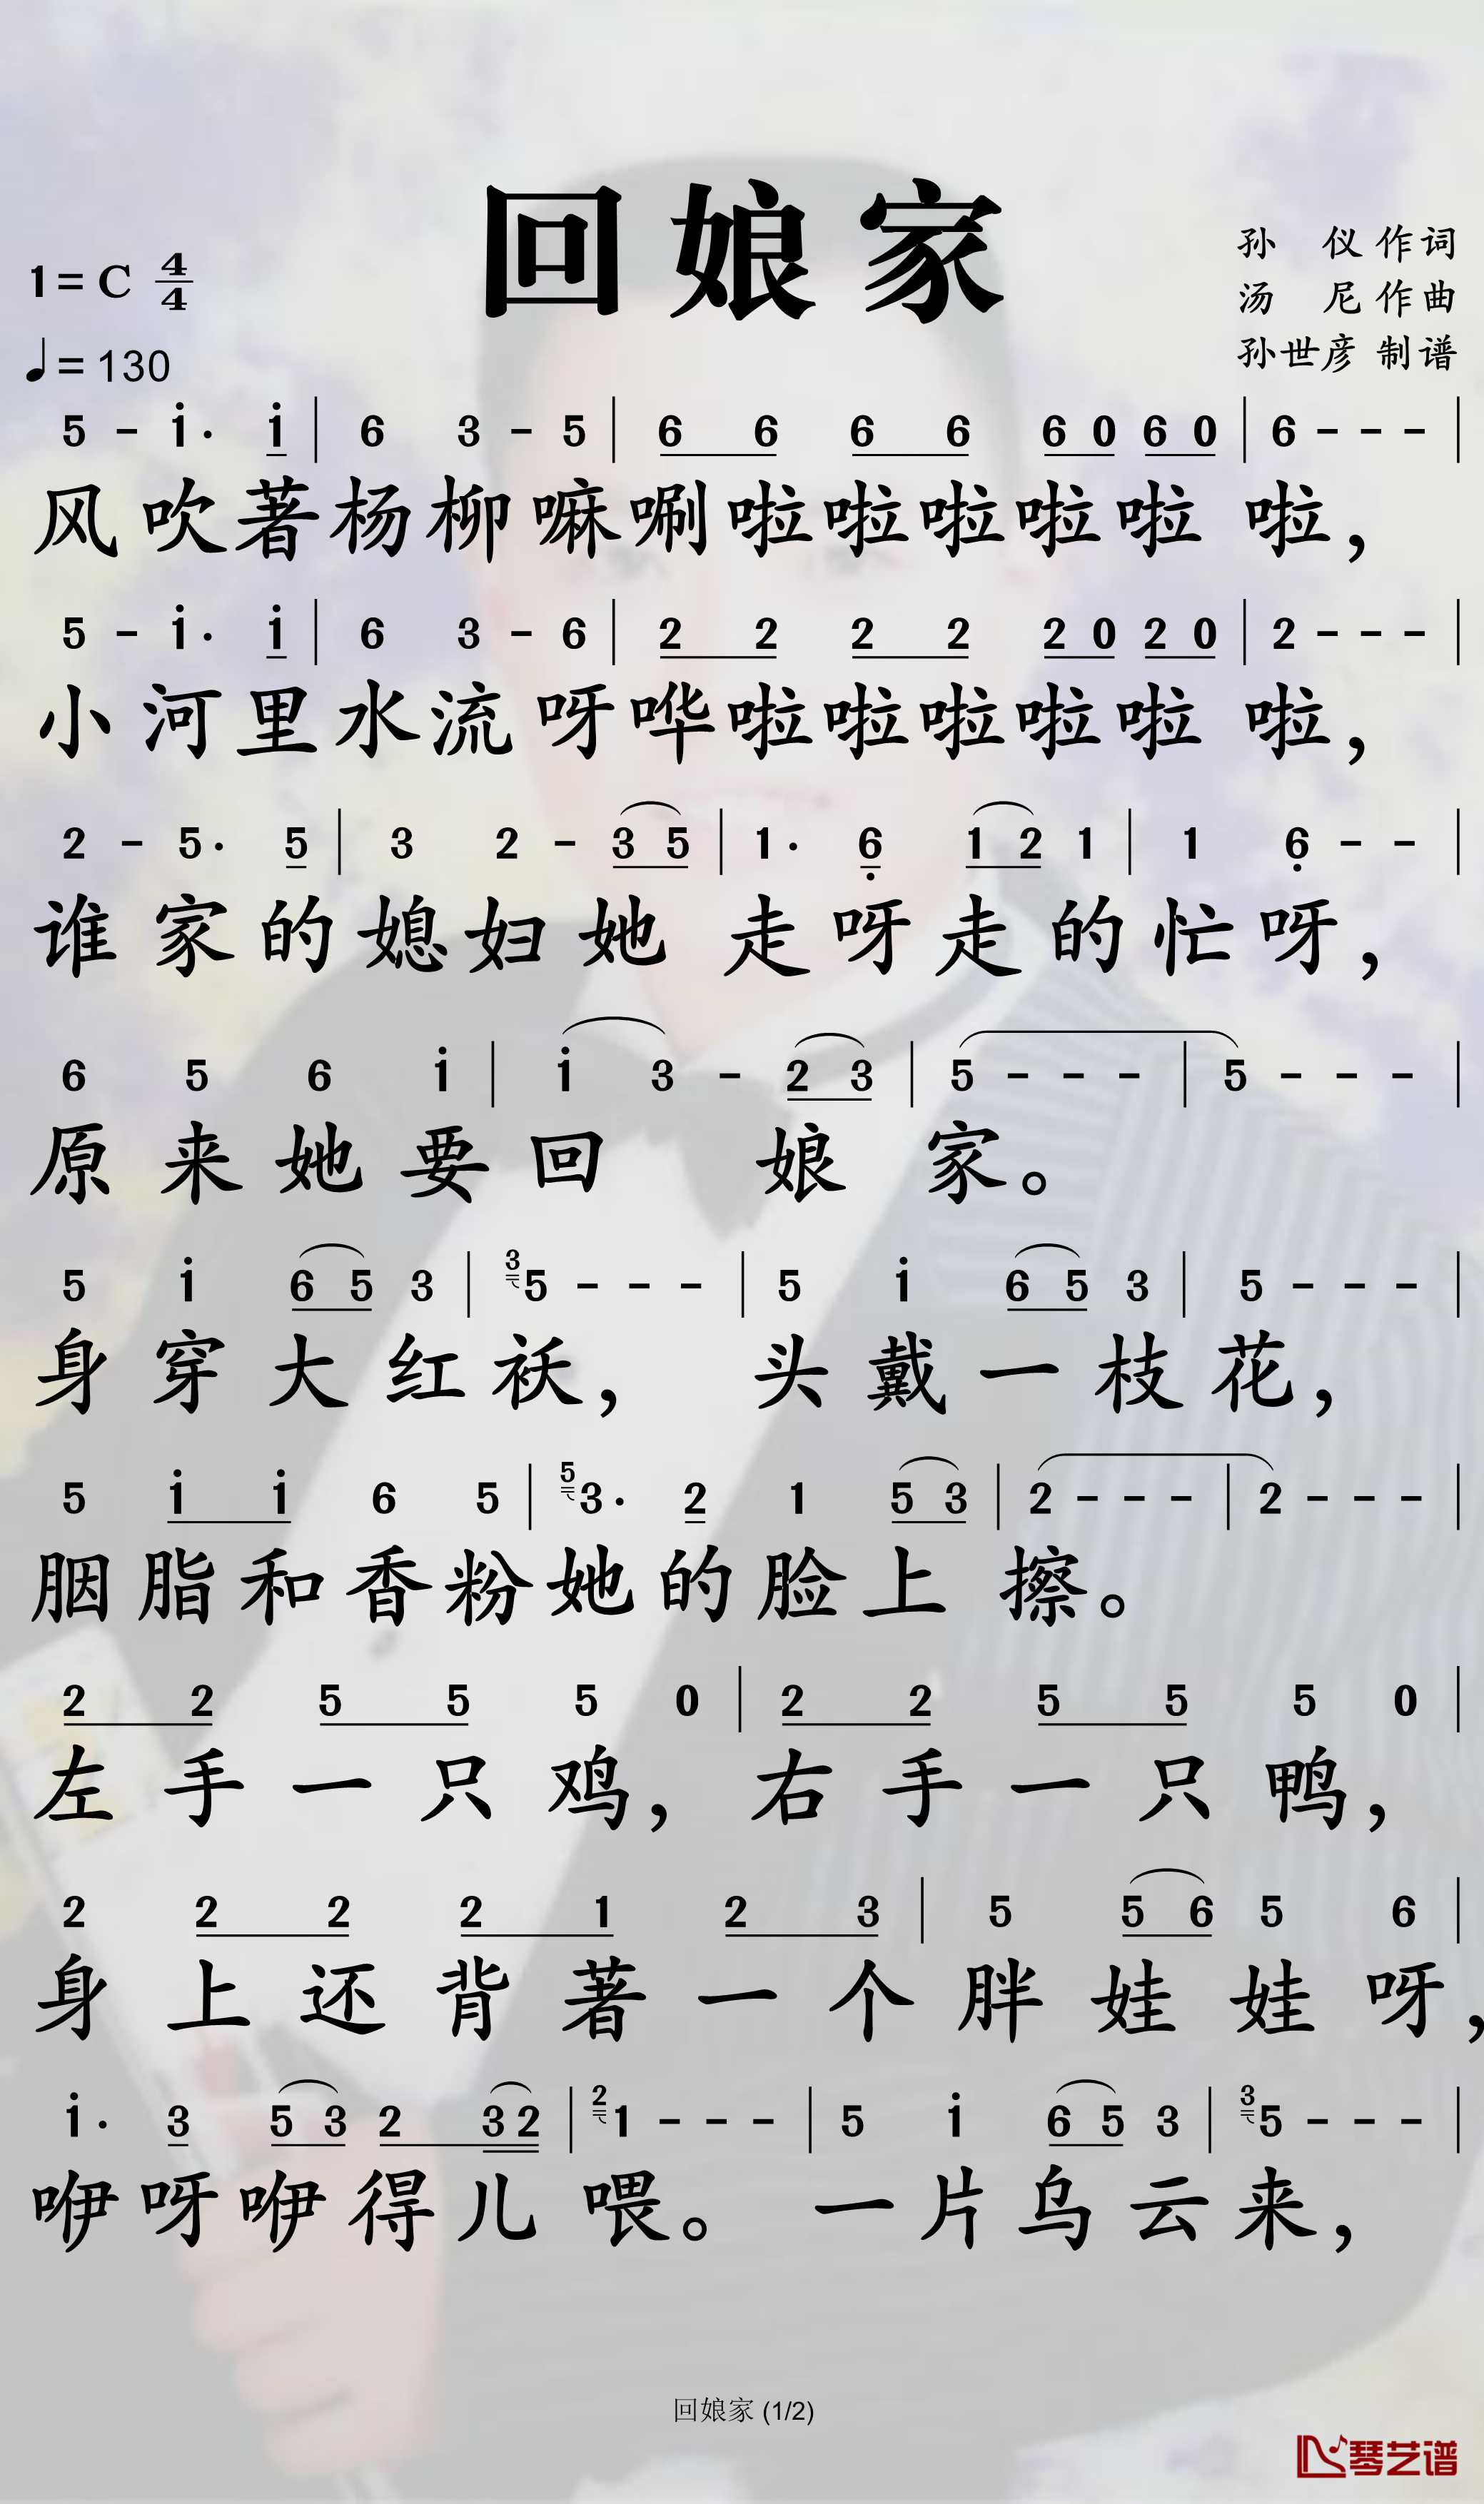 回娘家
孙 仪 作词
汤 尼 作曲
孙世彦 制谱
1=C 4/4
♩=130
5 - i· i | 6 3 - 5 | 6 6 6 6 6 0 6 0 | 6 - - - |
风吹著杨柳嘛唰啦啦啦啦啦 啦,
5 - i· i | 6 3 - 6 | 2 2 2 2 2 0 2 0 | 2 - - - |
小河里水流呀哗啦啦啦啦啦 啦,
2 - 5· 5 | 3 2 - 3 5 | 1· 6̣ 1 2 1 | 1 6̣ - - |
谁家的媳妇她 走呀走的忙呀,
6 5 6 i | i 3 - 2 3 | 5 - - - | 5 - - - |
原来她要回 娘 家。
5 i 6 5 3 | 3 5 - - - | 5 i 6 5 3 | 5 - - - |
身穿大红袄, 头戴一枝花,
5 i i 6 5 | 5 3· 2 1 5 3 | 2 - - - | 2 - - - |
胭脂和香粉她的脸上 擦。
2 2 5 5 5 0 | 2 2 5 5 5 0 |
左手一只鸡, 右手一只鸭,
2 2 2 2 1 2 3 | 5 5 6 5 6 |
身上还背著一个胖娃娃呀,
i· 3 5 3 2 3 2 | 2 1 - - - | 5 i 6 5 3 | 3 5 - - - |
咿呀咿得儿 喂。 一片乌云来,
回娘家 (1/2)
琴艺谱